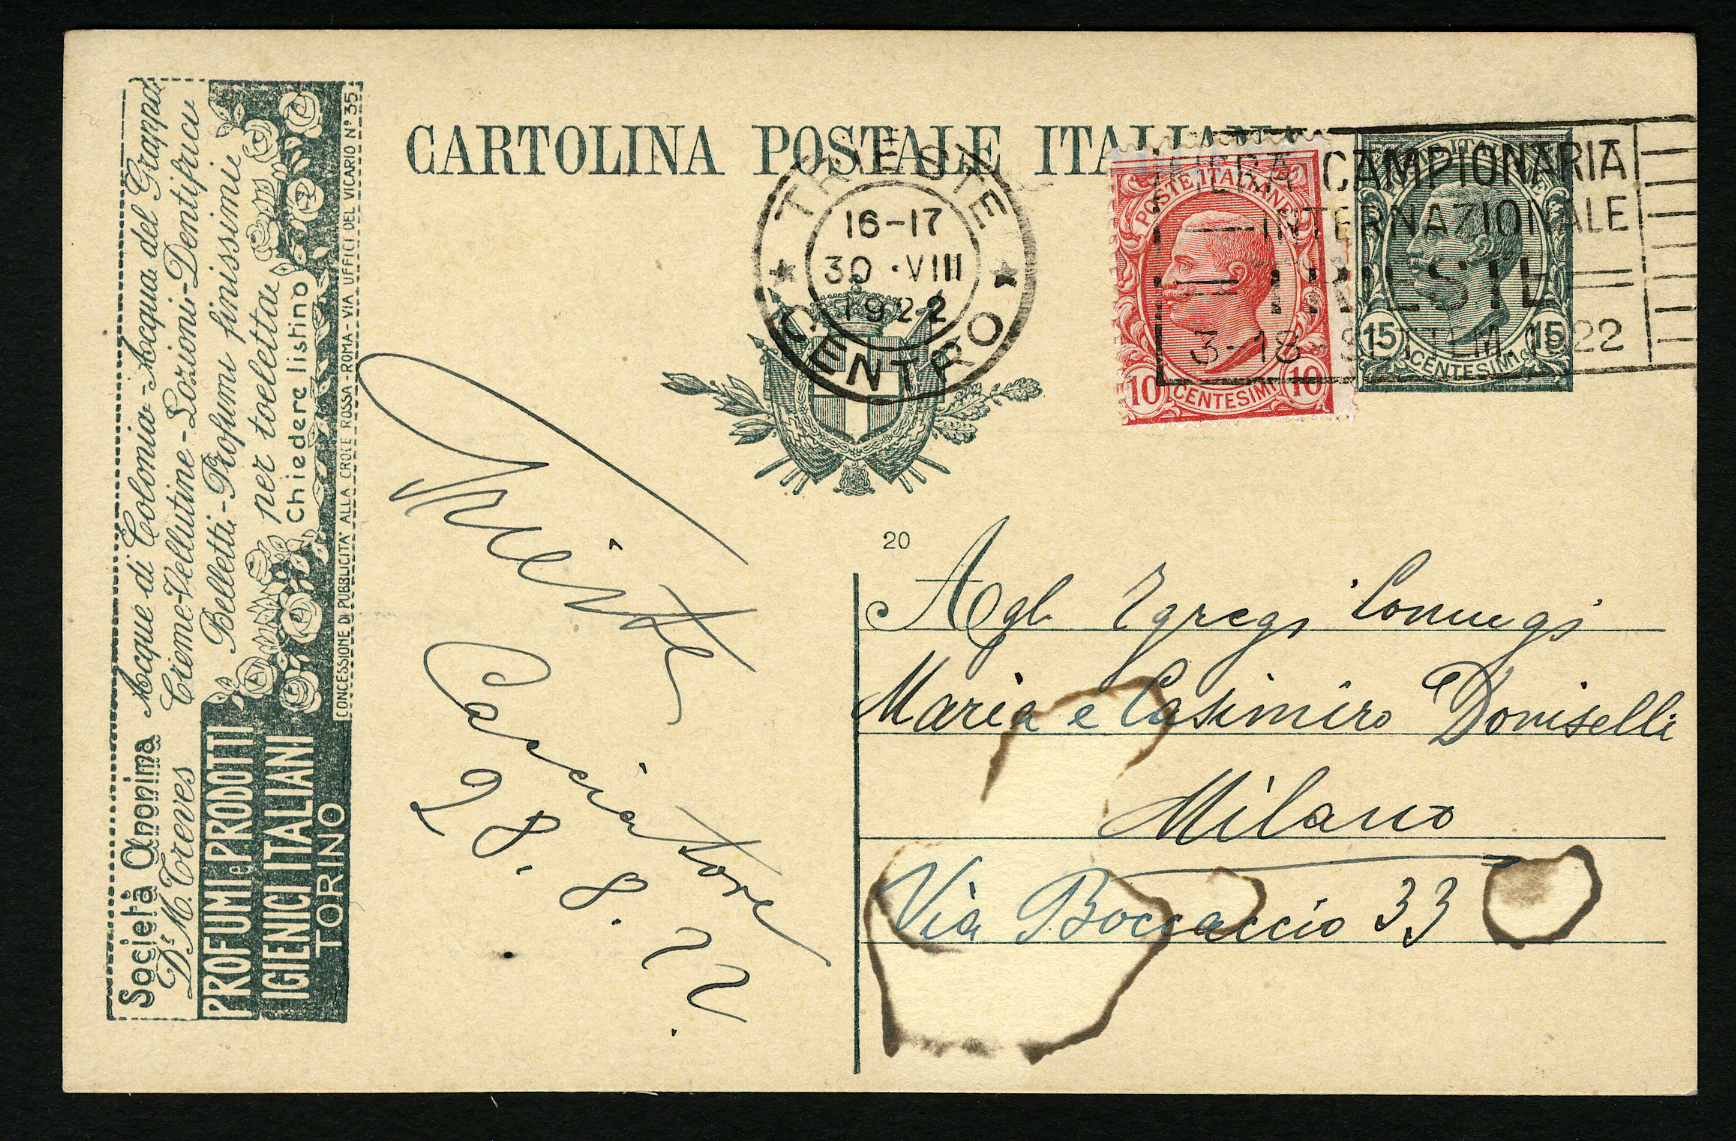 CARTOLINA POSTALE ITALIANA
TRIESTE
16-17
30 · VIII
1922
CENTRO
FIERA CAMPIONARIA
INTERNAZIONALE
TRIESTE
3-18 SETTEM. 1922
POSTE ITALIANE
10 CENTESIMI 10
POSTE ITALIANE
15 CENTESIMI 15
Società Anonima Acque di Colonia - Acqua del Grappa
Dr. M. Treves Creme-Vellutine-Lozioni-Dentifrici
Belletti-Profumi finissimi
per toeletta
Chiedere listino
PROFUMI e PRODOTTI
IGIENICI ITALIANI
TORINO
CONCESSIONE DI PUBBLICITA' ALLA CROCE ROSSA - ROMA - VIA UFFICI DEL VICARIO Nº 35
Trieste
Cacciatore
28.8.22.
20
Agl. Egregi Coniugi
Maria e Casimiro Doniselli
Milano
Via Boccaccio 33